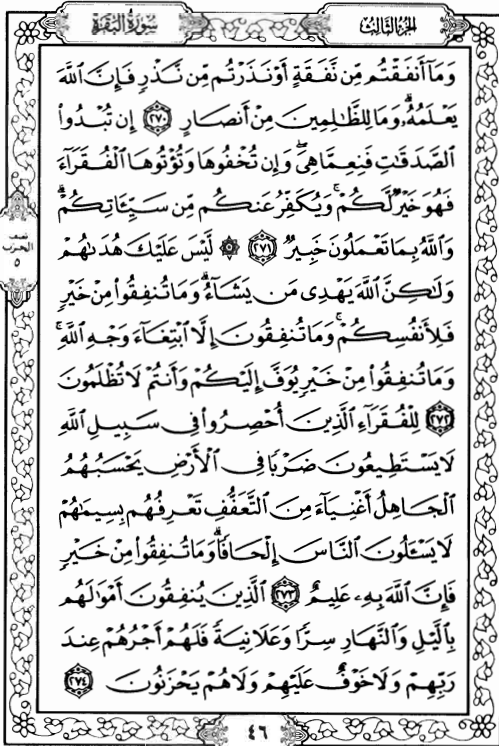 الجزء الثالث
سورة البقرة
وَمَآ أَنفَقْتُم مِّن نَّفَقَةٍ أَوْ نَذَرْتُم مِّن نَّذْرٍ فَإِنَّ ٱللَّهَ
يَعْلَمُهُۥ ۗ وَمَا لِلظَّـٰلِمِينَ مِنْ أَنصَارٍ ﴿٢٧٠﴾ إِن تُبْدُوا۟
ٱلصَّدَقَـٰتِ فَنِعِمَّا هِىَ ۖ وَإِن تُخْفُوهَا وَتُؤْتُوهَا ٱلْفُقَرَآءَ
فَهُوَ خَيْرٌ لَّكُمْ ۚ وَيُكَفِّرُ عَنكُم مِّن سَيِّـَٔاتِكُمْ ۗ
وَٱللَّهُ بِمَا تَعْمَلُونَ خَبِيرٌ ﴿٢٧١﴾ ۞ لَّيْسَ عَلَيْكَ هُدَىٰهُمْ
وَلَـٰكِنَّ ٱللَّهَ يَهْدِى مَن يَشَآءُ ۗ وَمَا تُنفِقُوا۟ مِنْ خَيْرٍ
فَلِأَنفُسِكُمْ ۚ وَمَا تُنفِقُونَ إِلَّا ٱبْتِغَآءَ وَجْهِ ٱللَّهِ ۚ
وَمَا تُنفِقُوا۟ مِنْ خَيْرٍ يُوَفَّ إِلَيْكُمْ وَأَنتُمْ لَا تُظْلَمُونَ
﴿٢٧٢﴾ لِلْفُقَرَآءِ ٱلَّذِينَ أُحْصِرُوا۟ فِى سَبِيلِ ٱللَّهِ
لَا يَسْتَطِيعُونَ ضَرْبًا فِى ٱلْأَرْضِ يَحْسَبُهُمُ
ٱلْجَاهِلُ أَغْنِيَآءَ مِنَ ٱلتَّعَفُّفِ تَعْرِفُهُم بِسِيمَـٰهُمْ
لَا يَسْـَٔلُونَ ٱلنَّاسَ إِلْحَافًا ۗ وَمَا تُنفِقُوا۟ مِنْ خَيْرٍ
فَإِنَّ ٱللَّهَ بِهِۦ عَلِيمٌ ﴿٢٧٣﴾ ٱلَّذِينَ يُنفِقُونَ أَمْوَٰلَهُم
بِٱلَّيْلِ وَٱلنَّهَارِ سِرًّا وَعَلَانِيَةً فَلَهُمْ أَجْرُهُمْ عِندَ
رَبِّهِمْ وَلَا خَوْفٌ عَلَيْهِمْ وَلَا هُمْ يَحْزَنُونَ ﴿٢٧٤﴾
نصف
الحزب
٥
٤٦